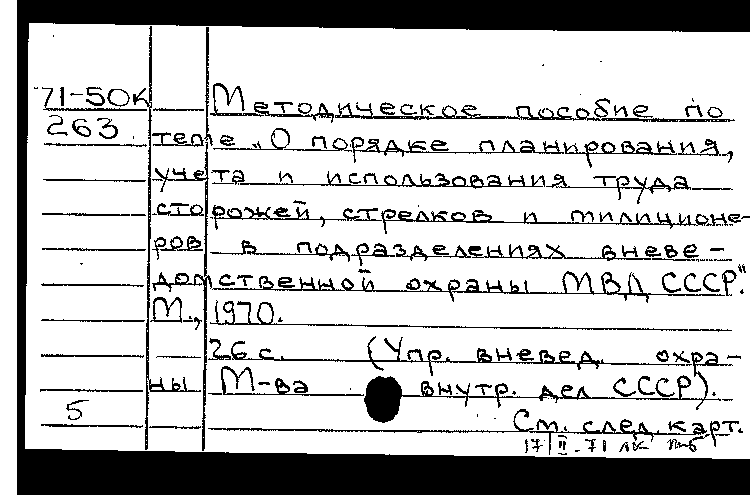 71-50К Методическое пособие по
263 теме „О порядке планирования,
учета и использования труда
сторожей, стрелков и милиционе-
ров в подразделениях вневе-
домственной охраны МВД СССР."
М., 1970.
26 с. (Упр. вневед. охра-
ны М-ва внутр. дел СССР).
5
См. след. карт.
17/II-71